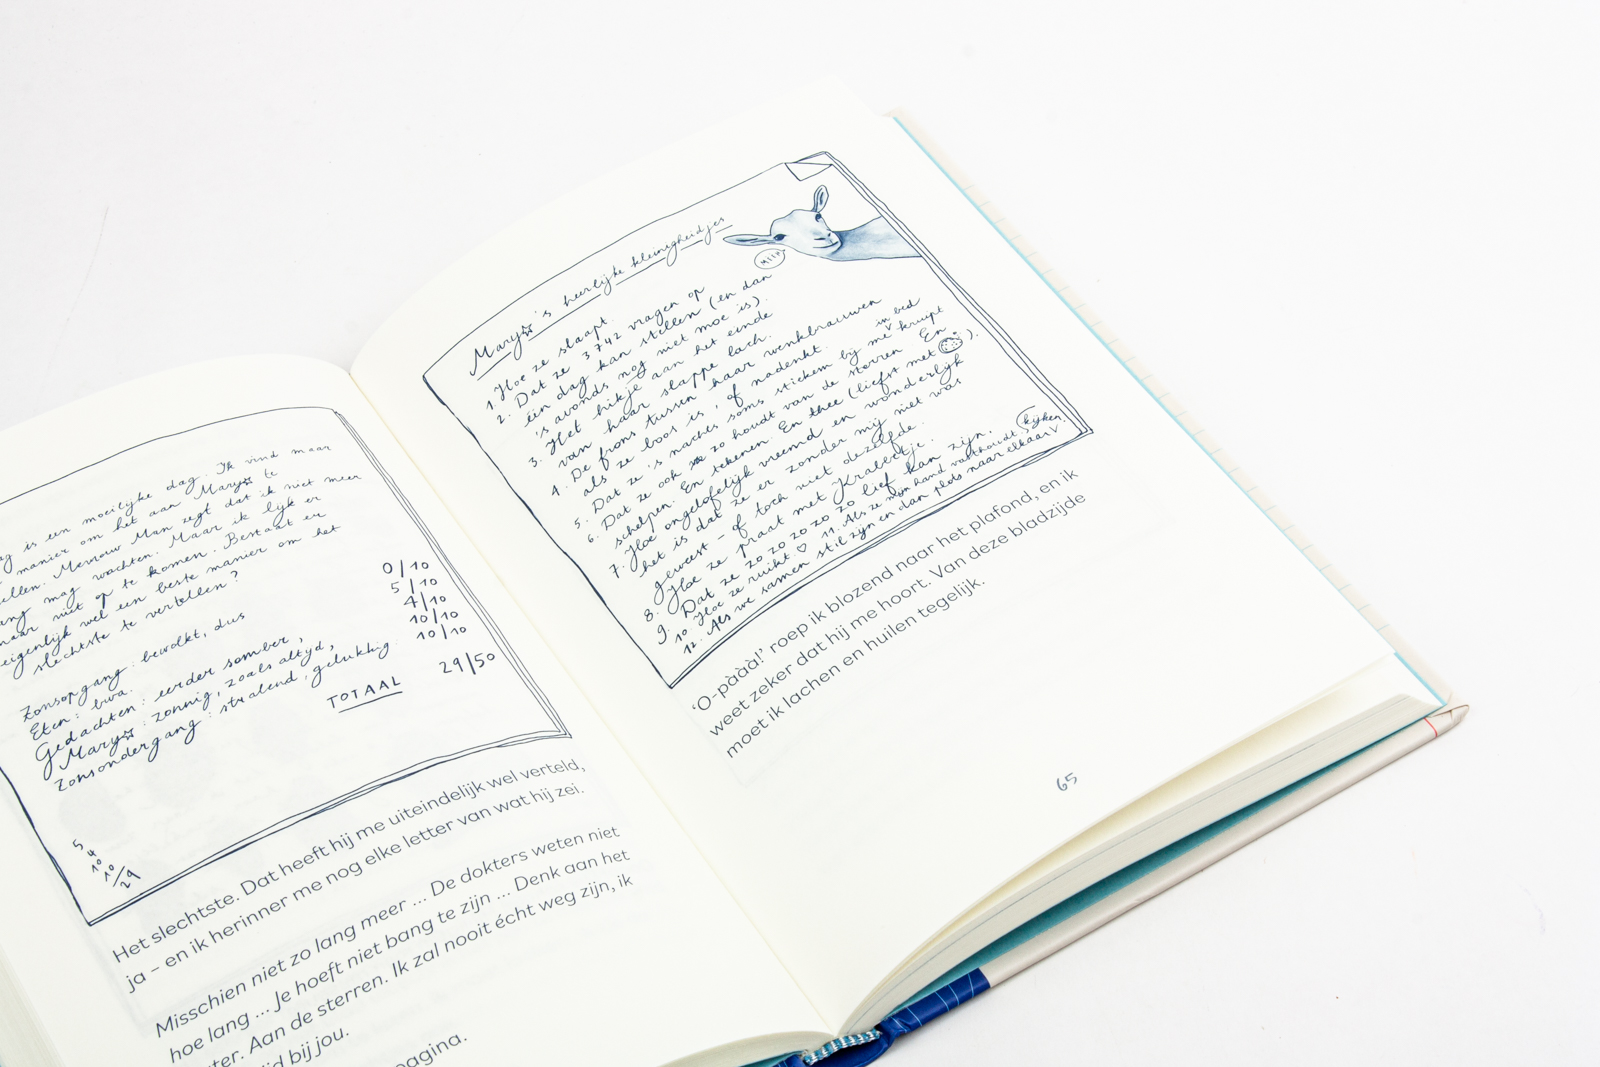 ag is een moeilijke dag. Ik vind maar
manier om het aan Mary☆ te
ellen. Mevrouw Man zegt dat ik niet meer
ang mag wachten. Maar ik lijk er
maar niet op te komen. Bestaat er
eigenlijk wel een beste manier om het
slechtste te vertellen?
Zonsopgang: bewolkt, dus 0/10
Eten: bwa. 5/10
Gedachten: eerder somber, 4/10
Mary☆: zonnig, zoals altijd, 10/10
Zonsondergang: stralend, gelukkig. 10/10
TOTAAL 29/50
5
4
10
10
29
Het slechtste. Dat heeft hij me uiteindelijk wel verteld,
ja – en ik herinner me nog elke letter van wat hij zei.
Misschien niet zo lang meer ... De dokters weten niet
hoe lang ... Je hoeft niet bang te zijn ... Denk aan het
ter. Aan de sterren. Ik zal nooit écht weg zijn, ik
jd bij jou.
pagina.
Mary☆'s heerlijke kleinigheidjes
MEEH
1. Hoe ze slaapt.
2. Dat ze 3742 vragen op
één dag kan stellen (en dan
's avonds nog niet moe is).
3. Het hikje aan het einde
van haar slappe lach.
4. De frons tussen haar wenkbrauwen
als ze boos is, of nadenkt.
5. Dat ze 's nachts soms stiekem bij me in bed kruipt
6. Dat ze ook zo houdt van de sterren. En
schelpen. En tekenen. En thee (liefst met ).
7. Hoe ongelofelijk vreemd en wonderlijk
het is dat ze er zonder mij niet was
geweest – of toch niet dezelfde.
8. Hoe ze praat met Krabbetje.
9. Dat ze zo zo zo zo zo lief kan zijn.
10. Hoe ze ruikt ♡ 11. Als ze mijn hand vasthoudt.
12. Als we samen stil zijn en dan plots naar elkaar kijken.
'O-pààà!' roep ik blozend naar het plafond, en ik
weet zeker dat hij me hoort. Van deze bladzijde
moet ik lachen en huilen tegelijk.
65